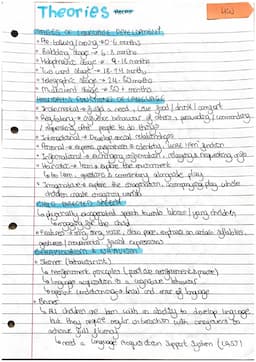 Theories
STAGES OF LANGUAGE DEVELOPMENT
• Pre-talking/cooing → 0-6 months
• Babbling stage → 6-8 months
• Holophrastic stage → 9-18 months
• Two word stage → 18-24 months
• Telegraphic stage → 24-30 months
• Multiword stage → 30+ months
HALLIDAY'S FUNCTIONS OF LANGUAGE
• Instrumental → fulfil a need, i.e. food/drink/comfort
• Regulatory → influence behaviour of others, persuading/commanding
/requesting other people to do things
• Interactional → Develop social relationships
• Personal → express
• Informational → exchanging information, relaying & requesting info
• Heuristic → learn & explore the environment
↳ to learn, questions & commentary alongside play
• Imaginative → explore the imagination, accompanying play where
children create imaginary worlds
CHILD DIRECTED SPEECH
↳ speech towards
• Features → song song voice,
gestures/ facial expressions
BEHAVIOURISM & NATIVISM
• Skinner (behaviourist)
↳ reinforcement principles
↳ language acquisition is a cognitive behaviour
↳ and use of language
• Bruner
↳ All children are born with an ability to develop language
but they require regular interaction with caregivers to
achieve full fluency
↳ need a Language Acquisition Support System (LASS)